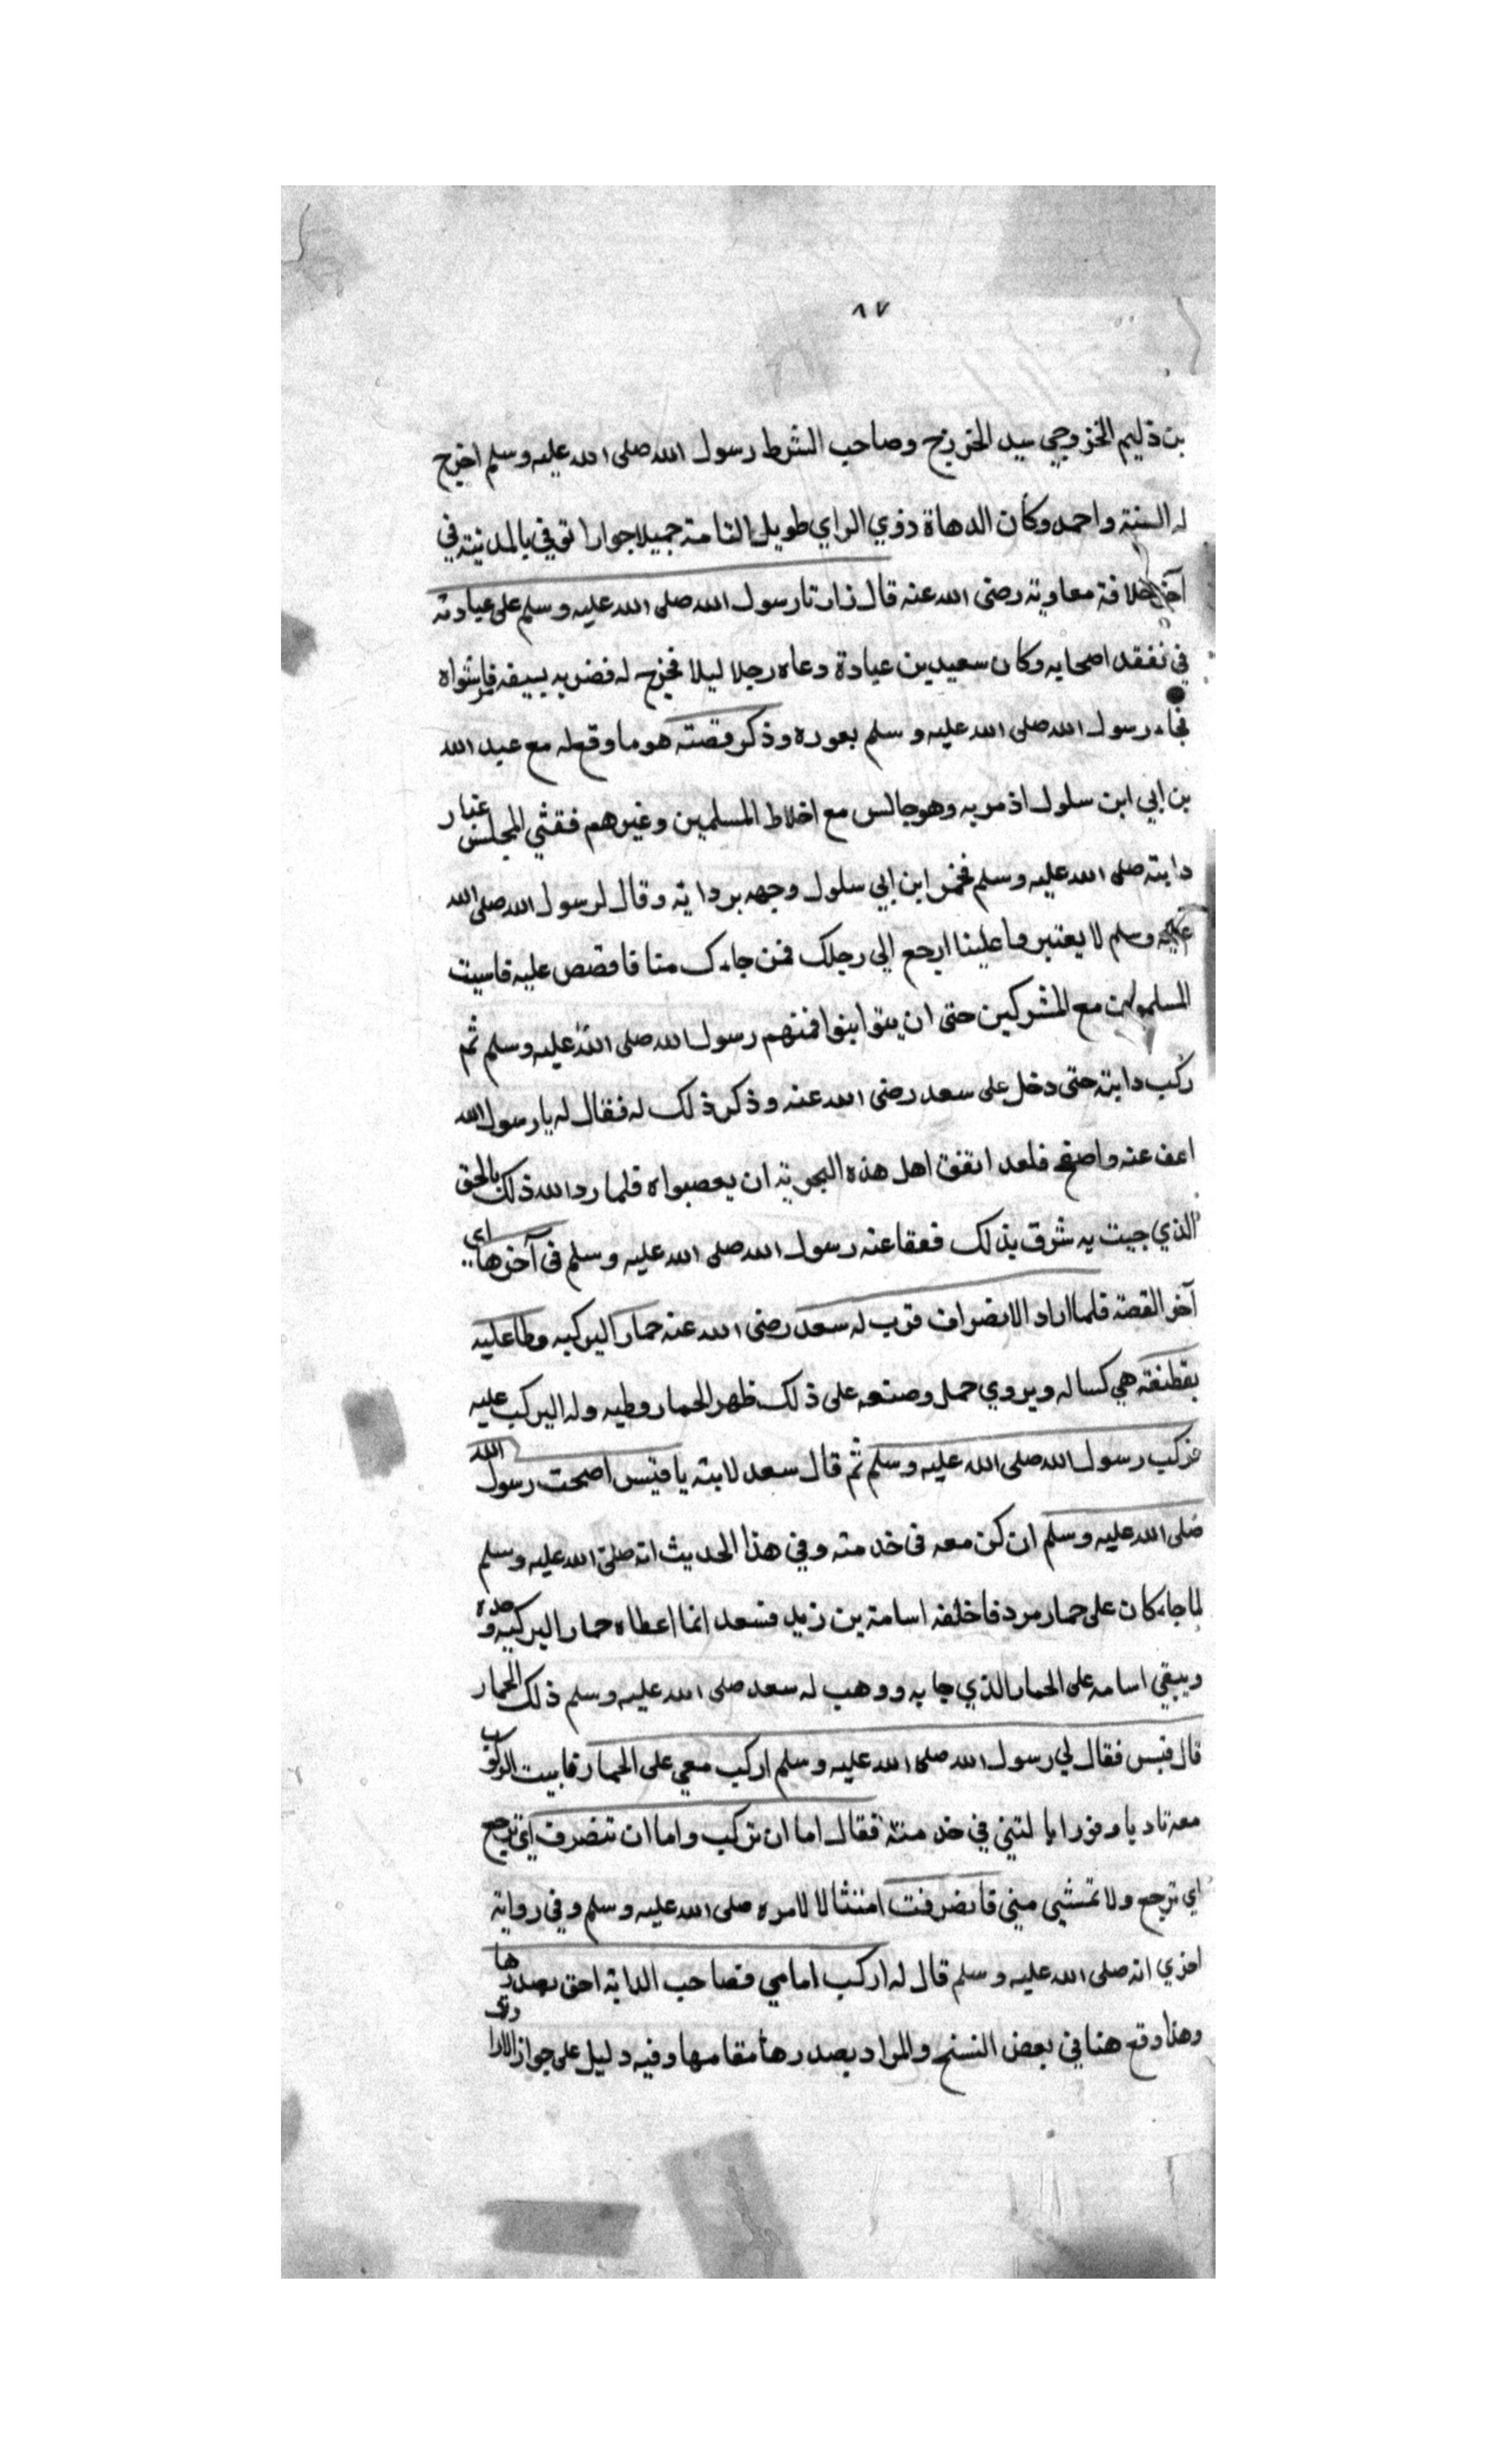 ٨٧
بن ذليم الخزوجي سيد الخزرج وصاحب الشرط رسول الله صلى الله عليه وسلم اخرج
له الستة واحمد وكان الدهاة ذوي الراي طويل القامة جميلا جوارا توفي بالمدينة في
آخر خلافة معاوية رضى الله عنه قال زارنا رسول الله صلى الله عليه وسلم على عيادته
في تفقد اصحابه وكان سعيد بن عبادة وعاه رجلا ليلا فخرج له فضربه بسيفه فاشواه
فجاء رسول الله صلى الله عليه وسلم بعوره وذكر قصته هو ما وقع له مع عبد الله
بن ابي ابن سلول اذ مر به وهو جالس مع اخلاط المسلمين وغيرهم فغشي المجلس غبار
دابته صلى الله عليه وسلم فخمر ابن ابي سلول وجهه بردايه وقال لرسول الله صلى الله
عليه وسلم لا يعتبر وا علينا ارجع الي رجلك فمن جاءك منا فاقصص عليه فاسبت
المسلمون مع المشركين حتى ان يتوابنوا فمنهم رسول الله صلى الله عليه وسلم ثم
ركب دابته حتى دخل على سعد رضى الله عنه وذكر ذلك له فقال له يا رسول الله
اعف عنه واصفح فلعد اتفق اهل هذه البحرية ان يعصبواه فلما رد الله ذلك بالحق
الذي جيت به شرق بذلك فعفا عنه رسول الله صلى الله عليه وسلم في آخرها اي
آخر القصة فلما اراد الانصراف قرب له سعد رضى الله عنه حمارا ليركبه وطا عليه
بقطيفة هي كسا له ويروي حمل وصنعه على ذلك ظهر الحمار وطيه وله اليركب عليه
فركب رسول الله صلى الله عليه وسلم ثم قال سعد لابنه يا قيس اصحب رسول الله
صلى الله عليه وسلم ان كن معه في خدمته وفي هذا الحديث انه صلى الله عليه وسلم
لما جاء كان على حمار مردفا خلفه اسامة بن زيد فسعد انما اعطاه حمارا ليركبه وحده
ويبقي اسامه على الحمار الذي جا به ووهب له سعد صلى الله عليه وسلم ذلك الحمار
قال قيس فقال لي رسول الله صلى الله عليه وسلم اركب معي على الحمار فابيت الركوب
معه تاديا وفورا با لتني في خدمته فقال اما ان تركب واما ان تنصرف اي ترجع
اي ترجع ولا تمشي ميني فانصرفت امتثالا لامره صلى الله عليه وسلم وفي رواية
اخري انه صلى الله عليه وسلم قال له اركب امامي فصاحب الدابة احق بصدرها
وهذا وقع هنا في بعض النسخ والمراد بصدرها مقامها وفيه دليل على جواز الارا